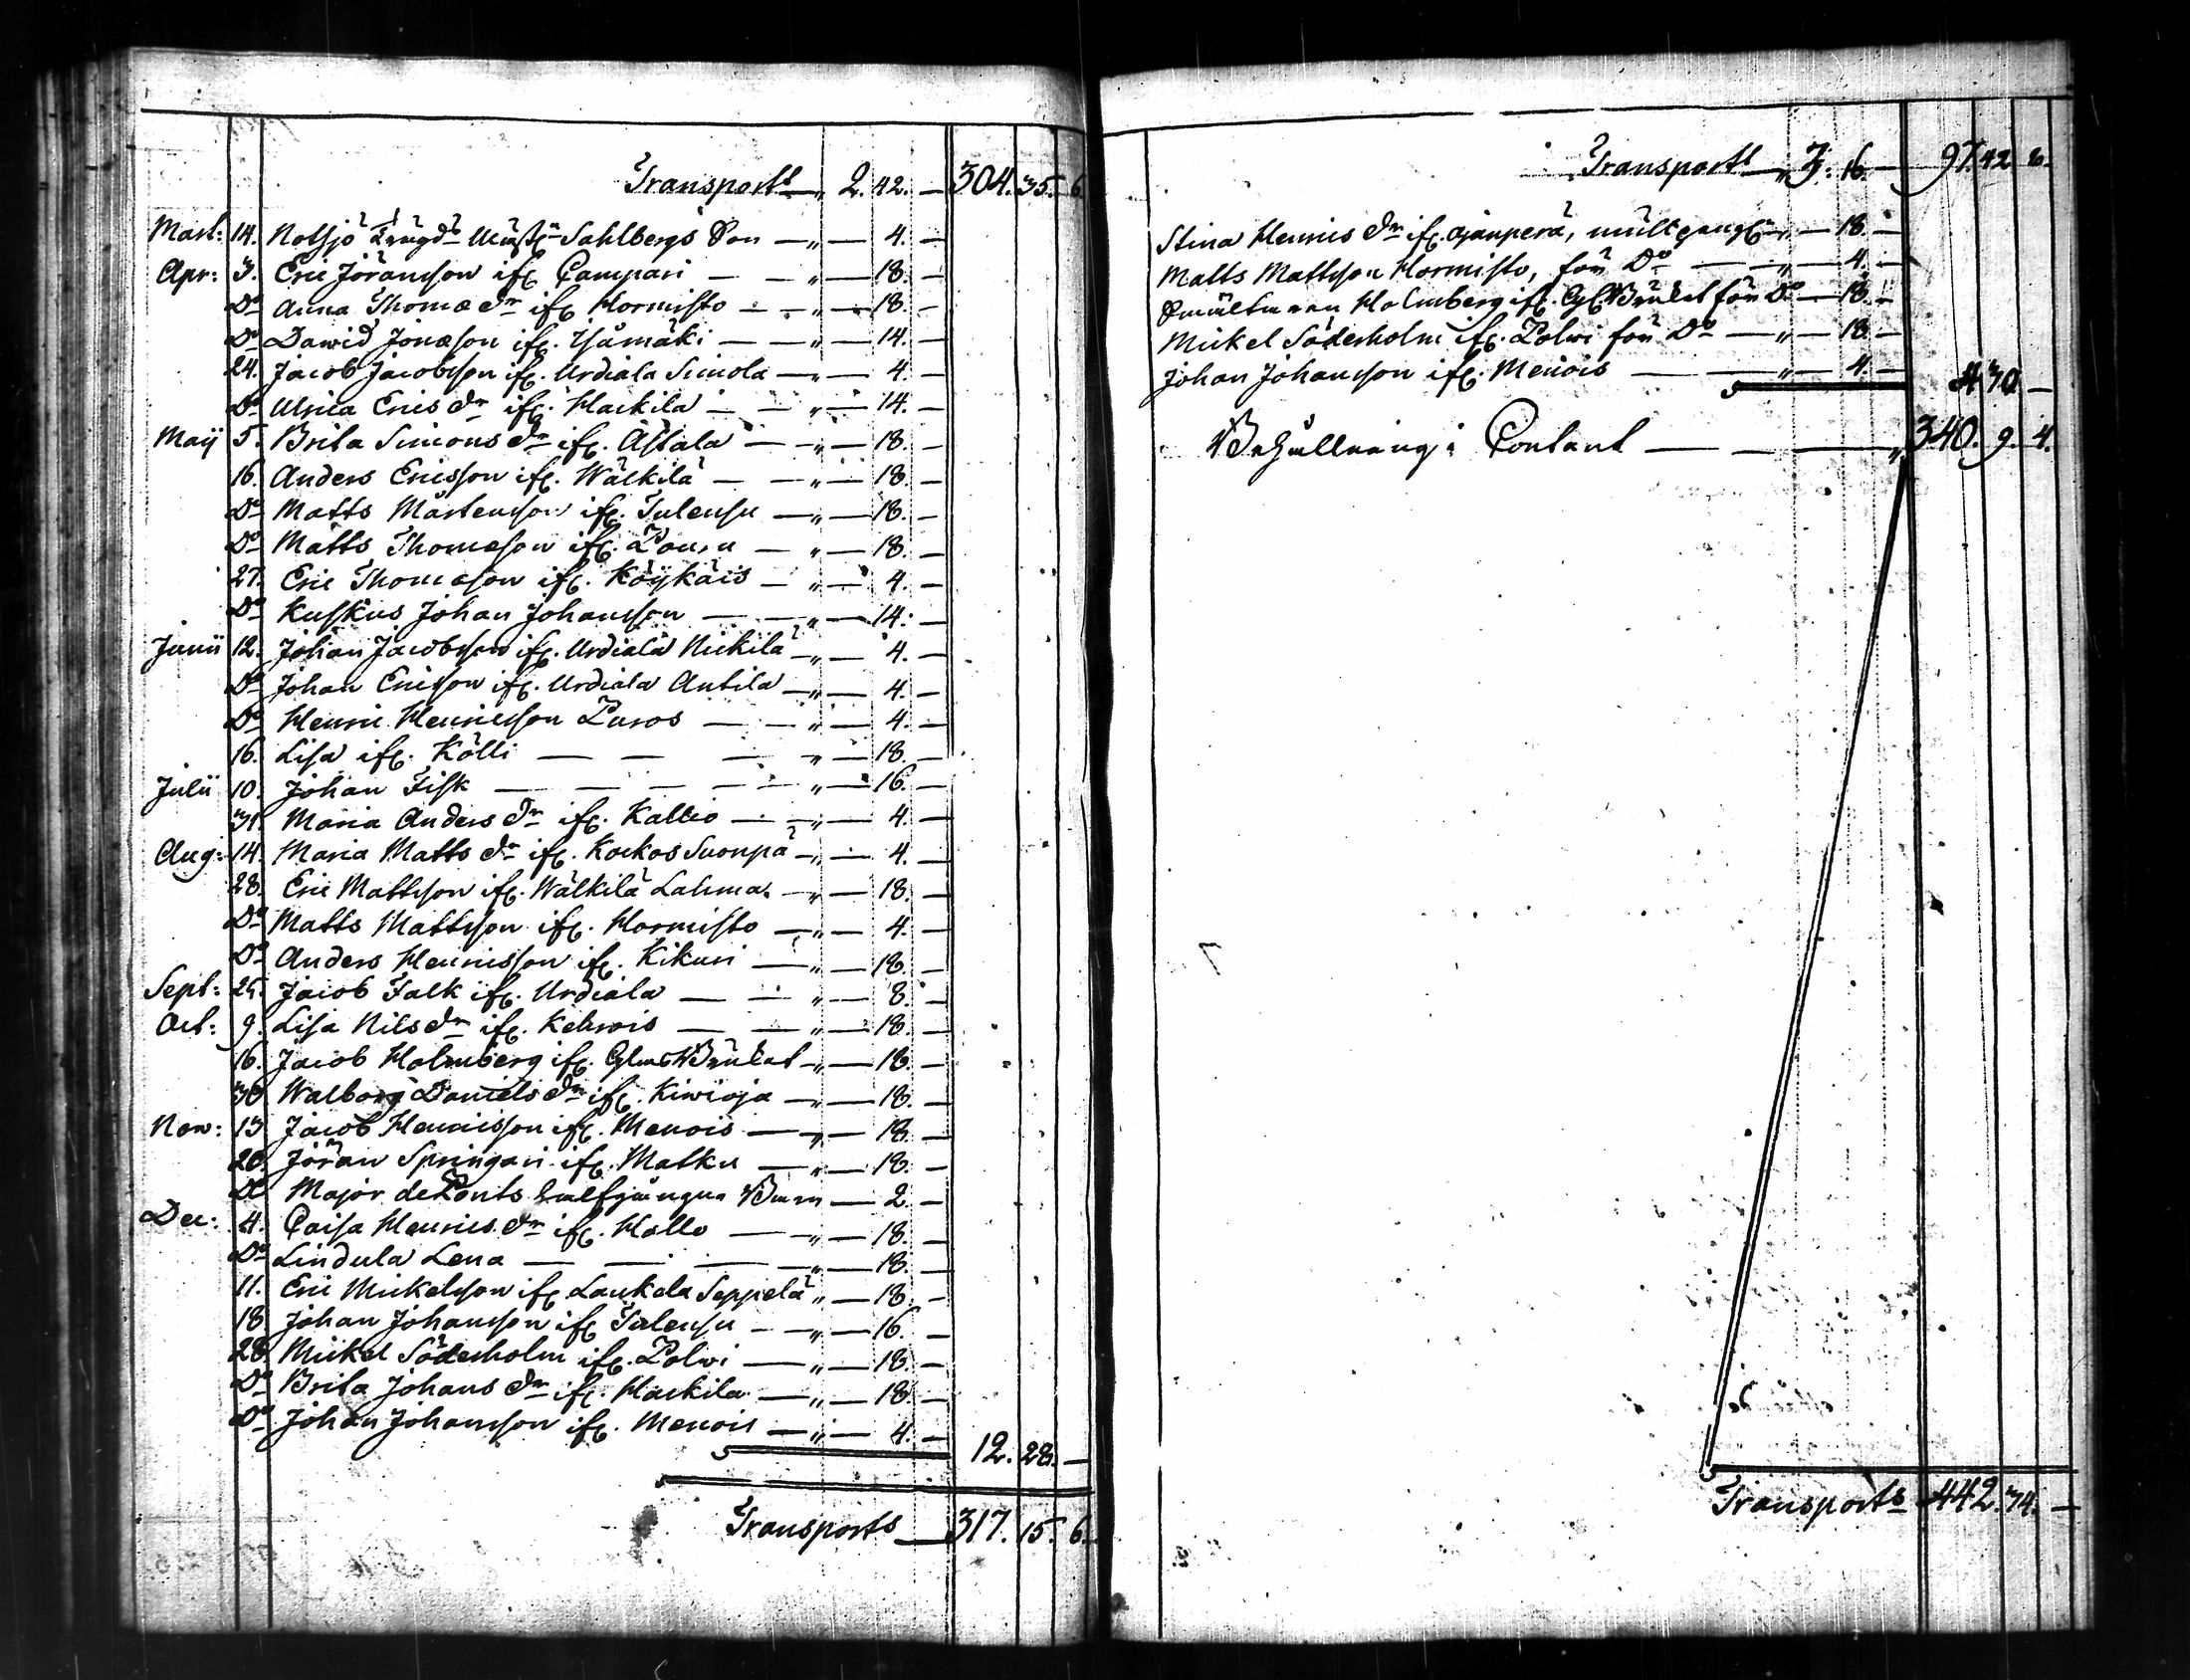 Transport „ 2. 42. — 304. 35. 6.
Mart: 14. Notsjö Sahlbergs Son — „ — 4. —
Apr: 3. Eric Jöransson ifr. Campari — „ — 18. —
Do Anna Thomæ dr ifr. Hormisto — „ — 18. —
Do Dawid Jonæson ifr. — „ — 14. —
24. Jacob Jacobsson ifr. Urdiala Simola — „ — 4. —
Do Ulrica Erics dr ifr. Hackila — „ — 14. —
Maij 5. Brita Simons dr ifr. — „ — 18. —
16. Anders Ericsson ifr. Wälkilä — „ — 18. —
Do Matts Mårtensson ifr. Tulensu — „ — 18. —
Do Matts Thomæson ifr. — „ — 18. —
27. Eric Thomæson ifr. Köykäis — „ — 4. —
Do Kuskus Johan Johansson — „ — 14. —
Junii 12. Johan Jacobsson ifr. Urdiala Nickilä — „ — 4. —
Do Johan Ericsson ifr. Urdiala Antila — „ — 4. —
Do Henric Henricsson Puros — „ — 4. —
16. Lisa ifr. Kölli — „ — 18. —
Julii 10. Johan Fisk — „ — 16. —
31. Maria Anders dr ifr. Kallio — „ — 4. —
Aug: 14. Maria Matts dr ifr. Kockos Suonpä — „ — 4. —
28. Eric Mattsson ifr. Wälkilä — „ — 18. —
Do Matts Mattsson ifr. Hormisto — „ — 4. —
Do Anders Henricsson ifr. Kikuri — „ — 18. —
Sept: 25. Jacob Falk ifr. Urdiala — „ — 8. —
Oct: 9. Lisa Nils dr ifr. Kehrois — „ — 18. —
16. Jacob Holmberg ifr. Glas Bruket — „ — 18. —
30. Walborg Daniels dr ifr. Kiwioja — „ — 18. —
Nov: 13. Jacob Henricsson ifr. Menois — „ — 18. —
20. Jöran Springari ifr. Matku — „ — 18. —
Do Major dePonts Barn — 2. —
Dec: 4. Caisa Henrics dr ifr. Hallo — „ — 18. —
Do Lindula Lena — „ — 18. —
11. Eric Mickelsson ifr. Laukela Seppelä „ — 18. —
18. Johan Johansson ifr. Tulensu — „ — 16. —
28. Mickel Söderholm ifr. Polwi — „ — 18. —
Do Brita Johans dr ifr. Hackila — „ — 18. —
Do Johan Johansson ifr. Menois — „ — 4. —
12. 28. —
Transport — 317. 15. 6.
Transport „ 3. 16. — 97. 42. 8.
Stina Henrics dr ifr. Ajanperä, „ — 18. —
Matts Mattsson Hormisto, för Do — „ — 4. —
Holmberg ifr. Gl. Bruket för Do — 18. —
Mickel Söderholm ifr. Polwi för Do — „ — 18. —
Johan Johansson ifr. Menois — „ — 4. —
4. 30. —
Behållning i Contant — „ 340. 9. 4.
Transport — 442. 34. —